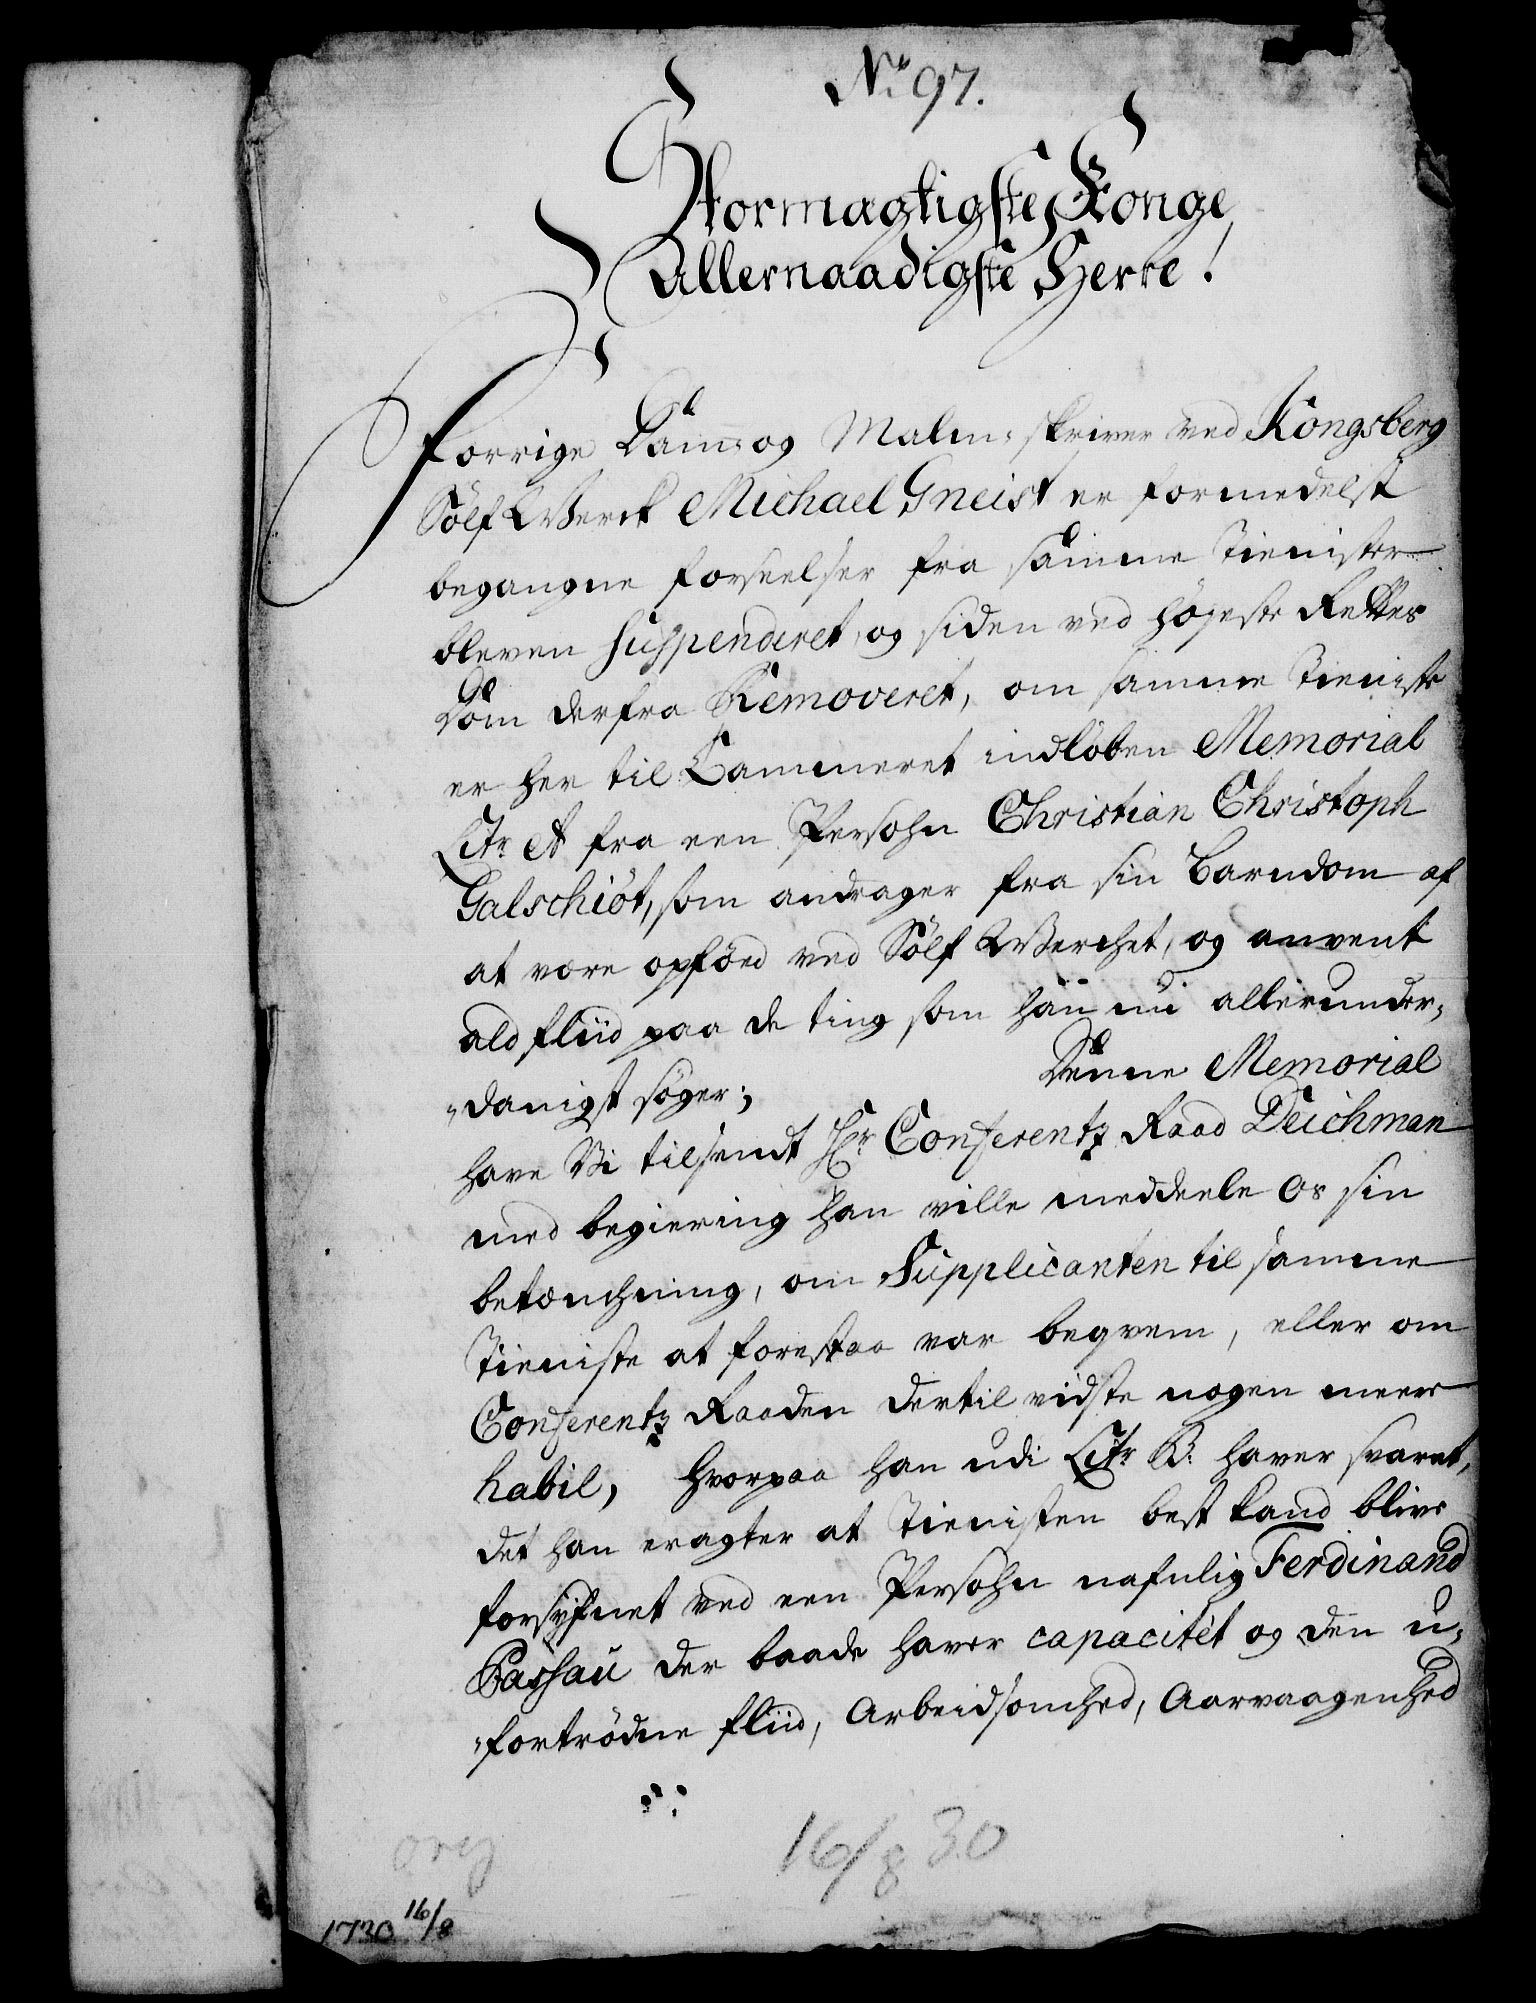 No 97.
Stormagtigste Konge,
Allernaadigste Herre!
Forrige Cam: og Malm: skriver ved Kongsberg
Sölf Werck Michael Gneist er formedelst
begangne forseelser fra samme Tieniste
bleven suspenderet, og siden ved höyeste Rettes
Dom derfra Removeret, om samme Tieniste
er her til Cammeret indlöben Memorial
Litr A fra een Persohn Christian Christoph
Galschiöt, som andrager fra sin Barndom af
at være opföed ved Sölf Werchet, og anvent
ald fliid paa de ting som han nu allerunder-
-danigst söger; Denne Memorial
have Vi tilsendt Hr Conferentz Raad Deichman
med begiering han ville meddeele os sin
betænchning, om Supplicanten til samme
Tieniste at forestaa var beqvem, eller om
Conferentz Raaden dertil vidste nogen meere
habil, hvorpaa han udi Litr B: haver svaret,
det han eragter at Tienisten best kand blive
forsÿnet ved een Persohn nafnlig Ferdinand
Passau der baade haver capacitet og den u-
-fortrödne fliid, Arbeidsomhed, Aarvaagenhed
16/8 30
org
1730 16/8